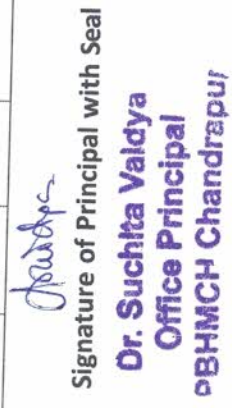 Signature of Principal with Seal
Dr. Suchita Valdya
Office Principal
PBHMCH Chandrapur